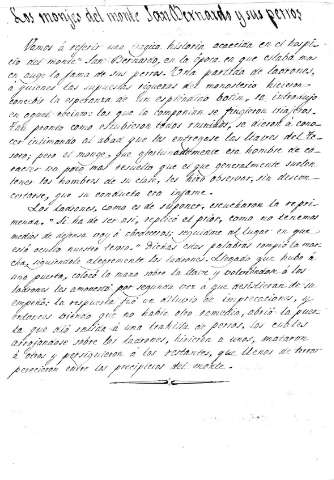 Los monjes del monte San Bernardo y sus perros
Vamos á referir una trágica historia acaecida en el hospi-
cio del monte San Bernardo, en la época en que estaba mas
en auge la fama de sus perros. Una partida de ladrones,
á quienes las supuestas riquezas del monasterio hicieron
concebir la esperanza de un espléndido botin, se introdujo
en aquel recinto: los que la componian se fingieron viajeros.
Tan pronto como estuvieron todos reunidos, se dieron á cono-
cer intimando al abad que les entregase las llaves del te-
soro; pero el monge, que afortunadamente era hombre de ca-
racter un poco mas resuelto que el que generalmente suelen
tener los hombres de su clase, les hizo observar, sin descon-
certarse, que su conducta era infame.
Los ladrones, como es de suponer, escucharon la repri-
menda. "Si ha de ser así, replicó el prior, como no tenemos
medios de defensa voy á obedeceros; seguidme al lugar en que
está oculto nuestro tesoro." Dichas estas palabras rompió la mar-
cha, siguiéndole alegremente los ladrones. Llegado que hubo á
una puerta, colocó la mano sobre la llave y volviéndose á los
ladrones les amonestó por segunda vez a que desistieran de su
empeño: la respuesta fué un diluvio de imprecaciones, y
entonces viendo que no habia otro remedio, abrió la puer-
ta que dió salida á una trahilla de perros, los cuales
arrojándose sobre los ladrones, hirieron a unos, mataron
á otros y persiguieron á los restantes, que llenos de terror
perecieron entre los precipicios del monte.